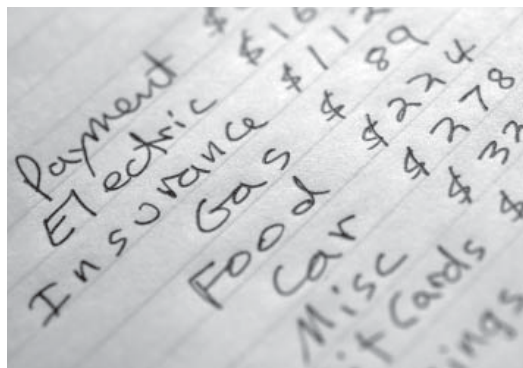 Payment $
Electric $16
Insurance $112
Gas $ 89
Food $224
Car $278
Misc $ 32
it Cards $
ings